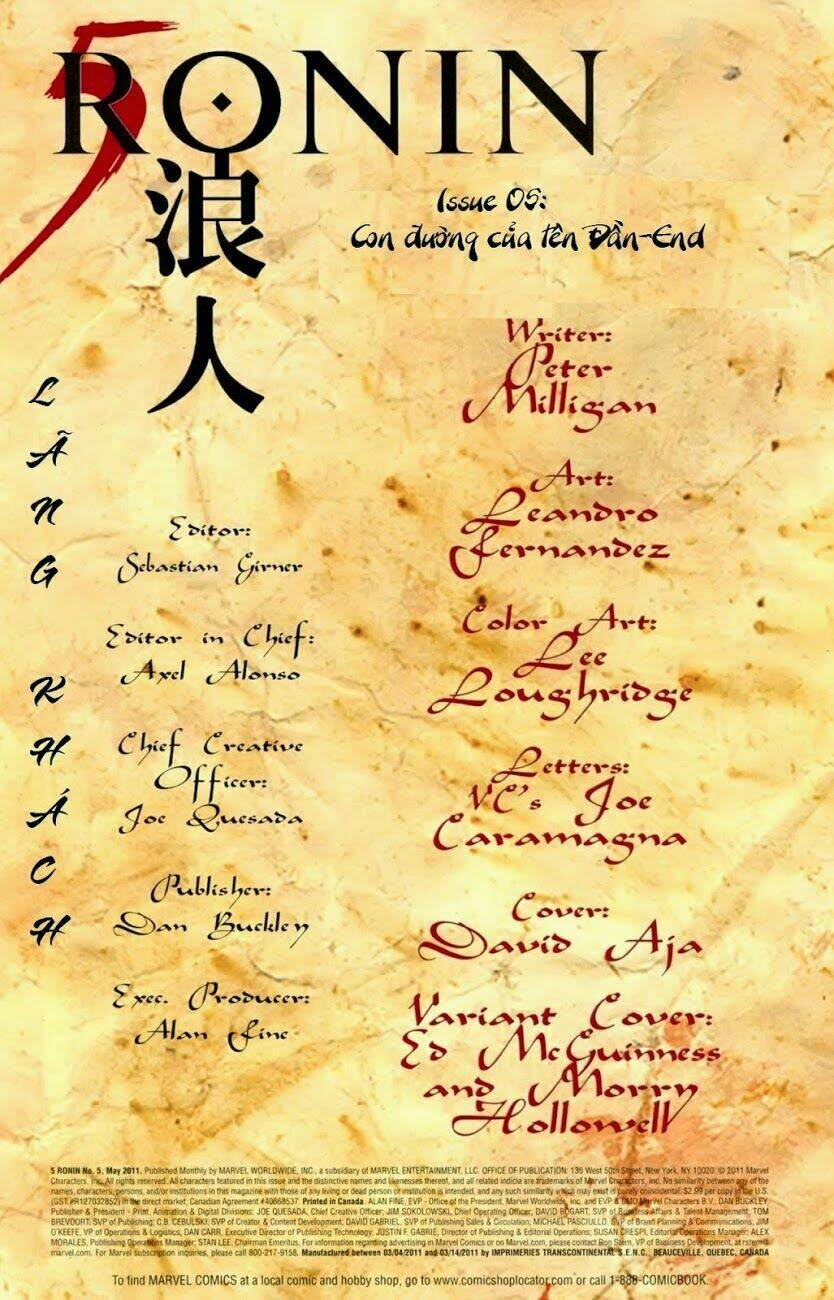 5 RONIN
浪人
Issue 05:
Con đường của tên Đần-End
LÃNG KHÁCH
Writer:
Peter
Milligan
Art:
Leandro
Fernandez
Color Art:
Lee
Loughridge
Letters:
VC's Joe
Caramagna
Cover:
David Aja
Variant Cover:
Ed McGuinness
and Morry
Hollowell
Editor:
Sebastian Girner
Editor in Chief:
Axel Alonso
Chief Creative
Officer:
Joe Quesada
Publisher:
Dan Buckley
Exec. Producer:
Alan Fine
5 RONIN No. 5, May 2011. Published Monthly by MARVEL WORLDWIDE, INC., a subsidiary of MARVEL ENTERTAINMENT, LLC. OFFICE OF PUBLICATION: 135 West 50th Street, New York, NY 10020. © 2011 Marvel
Characters, Inc. All rights reserved. All characters featured in this issue and the distinctive names and likenesses thereof, and all related indicia are trademarks of Marvel Characters, Inc. No similarity between any of the
names, characters, persons, and/or institutions in this magazine with those of any living or dead person or institution is intended, and any such similarity which may exist is purely coincidental. $2.99 per copy in the U.S.
(GST #R127032852) in the direct market; Canadian Agreement #40668537. Printed in Canada. ALAN FINE, EVP - Office of the President, Marvel Worldwide, Inc. and EVP & CMO Marvel Characters B.V.; DAN BUCKLEY,
Publisher & President - Print, Animation & Digital Divisions; JOE QUESADA, Chief Creative Officer; JIM SOKOLOWSKI, Chief Operating Officer; DAVID BOGART, SVP of Business Affairs & Talent Management; TOM
BREVOORT, SVP of Publishing; C.B. CEBULSKI, SVP of Creator & Content Development; DAVID GABRIEL, SVP of Publishing Sales & Circulation; MICHAEL PASCIULLO, SVP of Brand Planning & Communications; JIM
O'KEEFE, VP of Operations & Logistics; DAN CARR, Executive Director of Publishing Technology; JUSTIN F. GABRIE, Director of Publishing & Editorial Operations; SUSAN CRESPI, Editorial Operations Manager; ALEX
MORALES, Publishing Operations Manager; STAN LEE, Chairman Emeritus. For information regarding advertising in Marvel Comics or on Marvel.com, please contact Ron Stern, VP of Business Development, at rstern@
marvel.com. For Marvel subscription inquiries, please call 800-217-9158. Manufactured between 03/04/2011 and 03/14/2011 by IMPRIMERIES TRANSCONTINENTAL S.E.N.C., BEAUCEVILLE, QUEBEC, CANADA
To find MARVEL COMICS at a local comic and hobby shop, go to www.comicshoplocator.com or call 1-888-COMICBOOK.